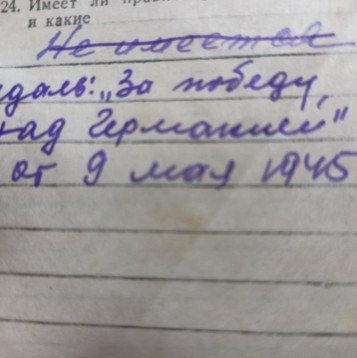 24. Имеет ли
и какие
Не имеется
даль: „За победу
над Германией"
от 9 мая 1945